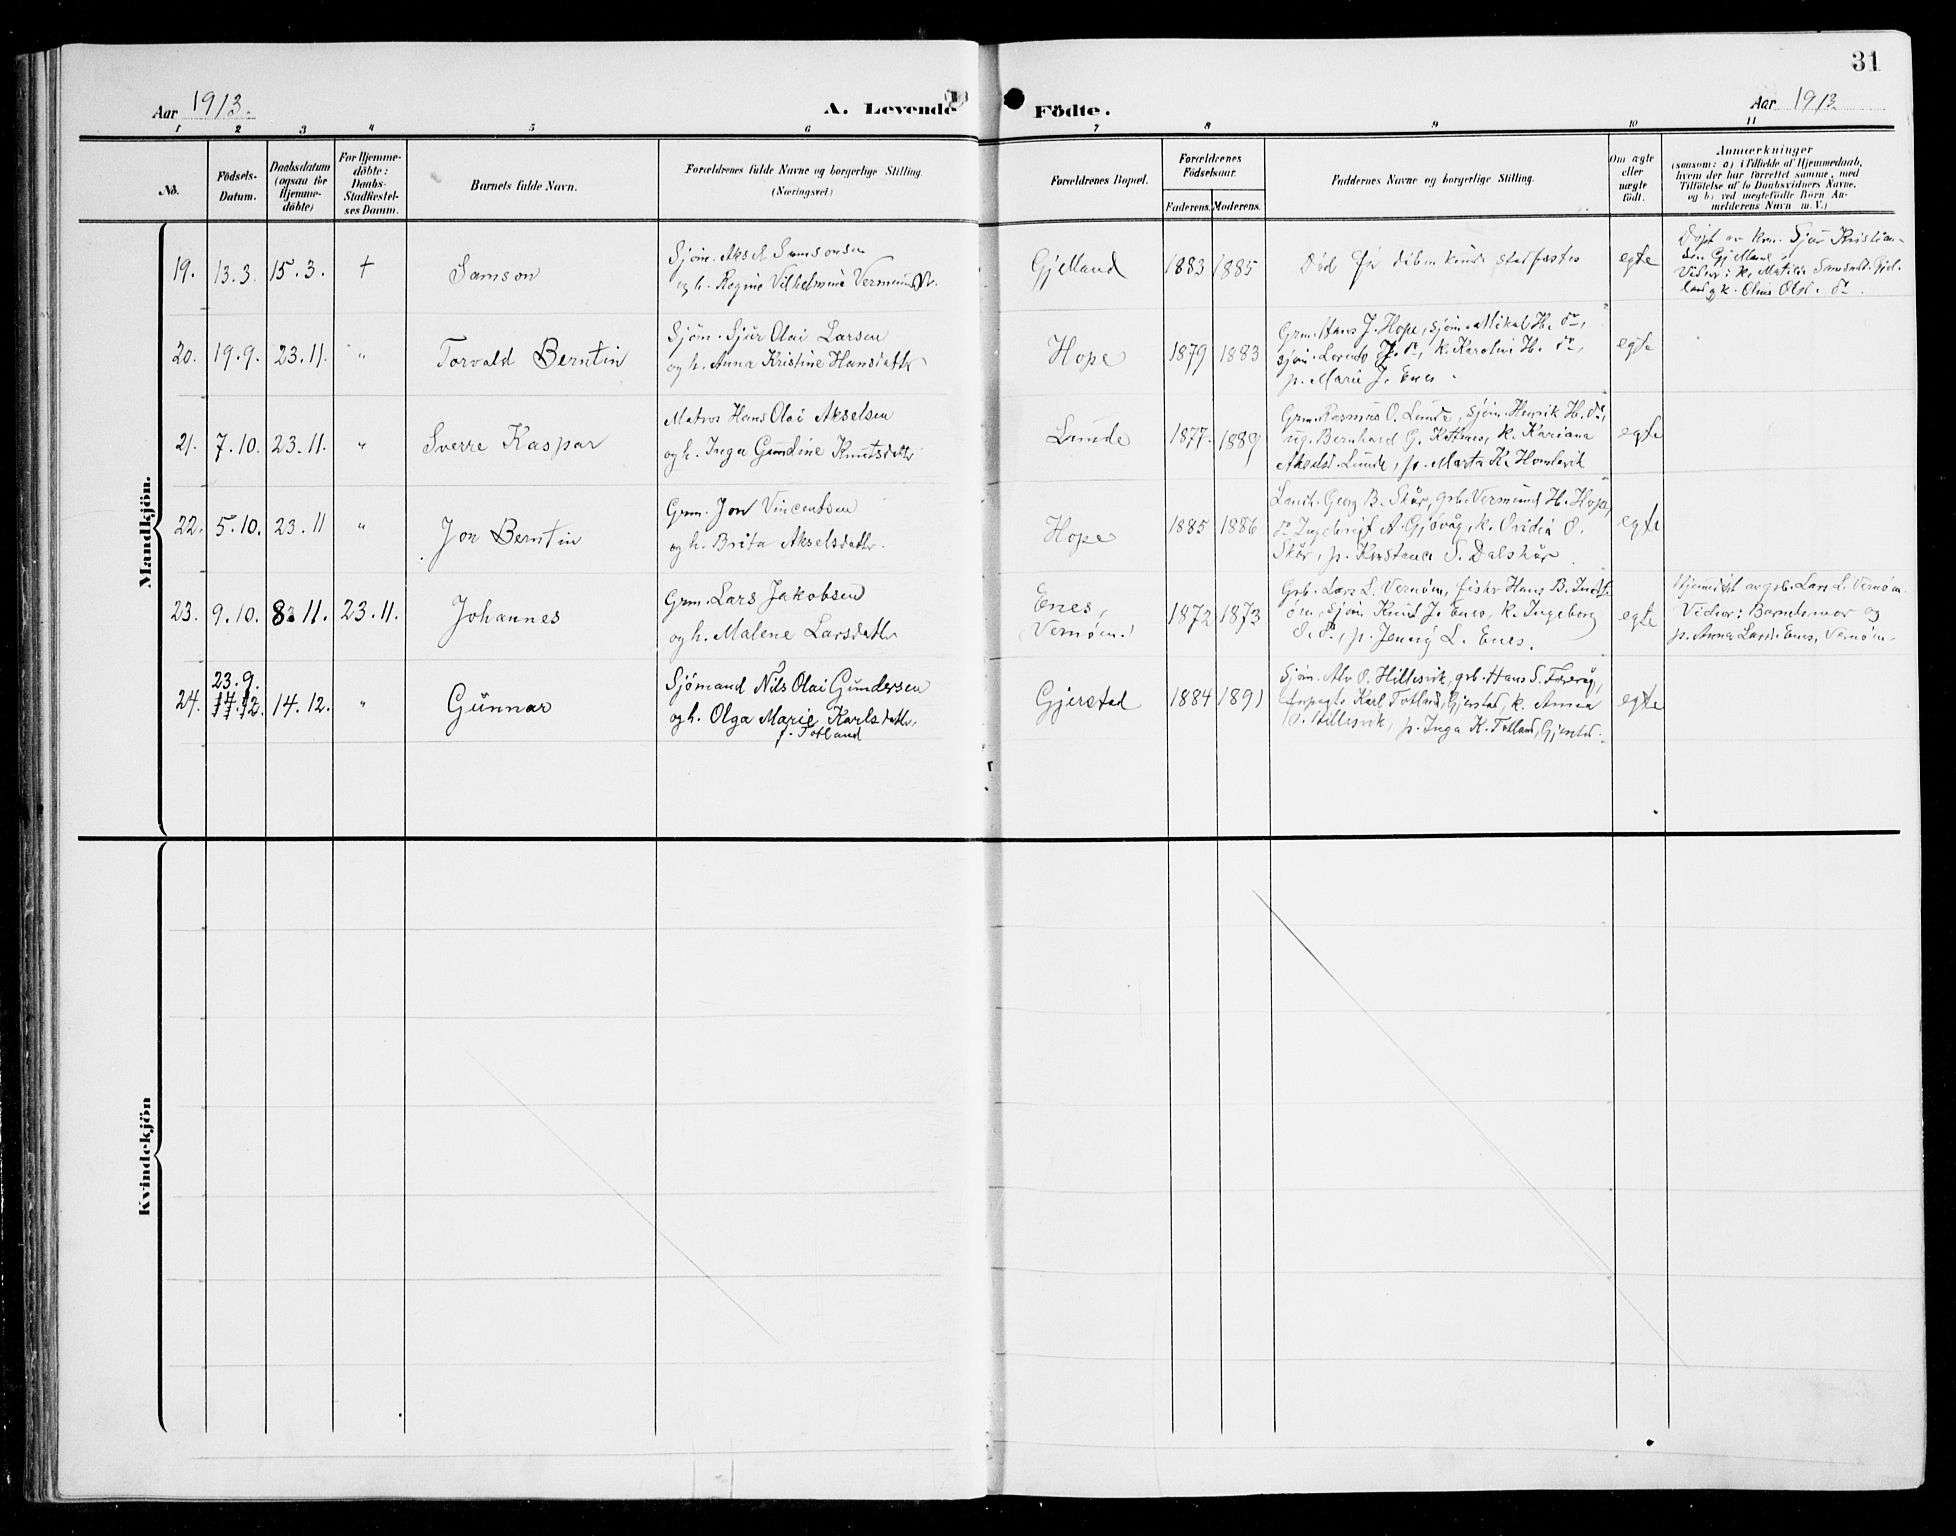 31
Aar 1913. A. Levende Födte. Aar 1913
1 2 3 4 5 6 7 8 9 10 11
No.
Födsels-
Datum.
Daabsdatum
(ogsaa for
Hjemme-
döbte)
For Hjemme-
döbte:
Daabs-
Stadfæstel-
ses Datum.
Barnets fulde Navn.
Forældrenes fulde Navne og borgerlige Stilling.
(Næringsvei)
Forældrenes Bopæl.
Forældrenes
Födselsaar.
Faderens. Moderens.
Faddernes Navne og borgerlige Stilling.
Om ægte
eller
uægte
födt.
Anmærkninger
(saasom: a) i Tilfælde af Hjemmedaab,
hvem der har forrettet samme, med
Tilföielse af to Daabsvidners Navne.
og b) ved uægtefödte Börn An-
melderens Navn m. V.)
Mandkjön.
19. 13.3. 15.3. † Samson
Sjöm. Aksel Samsonsen
og h. Regine Vilhelmine Vermundsdtr.
Gjelland 1883 1885
Död før dåben kunde stadfæstes
egte
Döpt av km. Sjur Kristian-
sen Gjelland
Vidner: k. Matilde Samsonsd. Gjel-
land og k. Olina Olsd. do.
20. 19.9. 23.11. " Torvald Berntin
Sjöm. Sjur Olai Larsen
og h. Anna Kristine Hansdatter
Hope 1879 1883
Grm. Hans J. Hope, sjöm. Mikal H. do,
sjöm. Lorents J. do, k. Karoline H. do,
p. Marie J. Enes.
egte
21. 7.10. 23.11. " Sverre Kaspar
Matros Hans Olai Akselsen
og h. Inga Gundine Knutsdatter
Lunde 1877. 1889
Grm. Rasmus O. Lunde, sjöm. Henrik H. do,
ug. Bernhard G. Kottnes, k. Kariana
Akselsd. Lunde, p. Marta K. Homlevik
egte
22. 5.10. 23.11 " Jon Berntin
Grm. Jon Vincentsen
og h. Brita Akselsdatter.
Hope 1885 1886
Landh. Georg B. Skår, grb. Vermund H. Hope,
do Ingebrigt A. Gjövåg, k. Ovidia O.
Skår, p. Kristense S. Dalskår.
egte
23. 9.10. 8.11. 23.11. Johannes
Grm. Lars Jakobsen
og h. Malene Larsdatter
Enes,
(Vernöen.)
1872 1873
Grb. Lars L. Vernöen, fisker Hans B. Indre
öen, sjöm. Knud J. Enes, k. Ingeborg
O. do, p. Jenny L. Enes.
egte
Hjemdöbt av grb. Lars L. Vernöen.
Vidner: Barnets mor og
p. Anna Larsd. Enes, Vernöen.
24. 23.9.
14.12. 14.12. " Gunnar
Sjömand Nils Olai Gundersen
og h. Olga Marie Karlsdatter,
f. Totland
Gjerstad 1884 1891
Sjöm. Alv O. Hillesvik, grb. Hans S. Färevåg,
Karl Totland, Gjerstad, k. Anna
O. Hillesvik, p. Inga K. Totland, Gjerstad.
egte
Kvindekjön